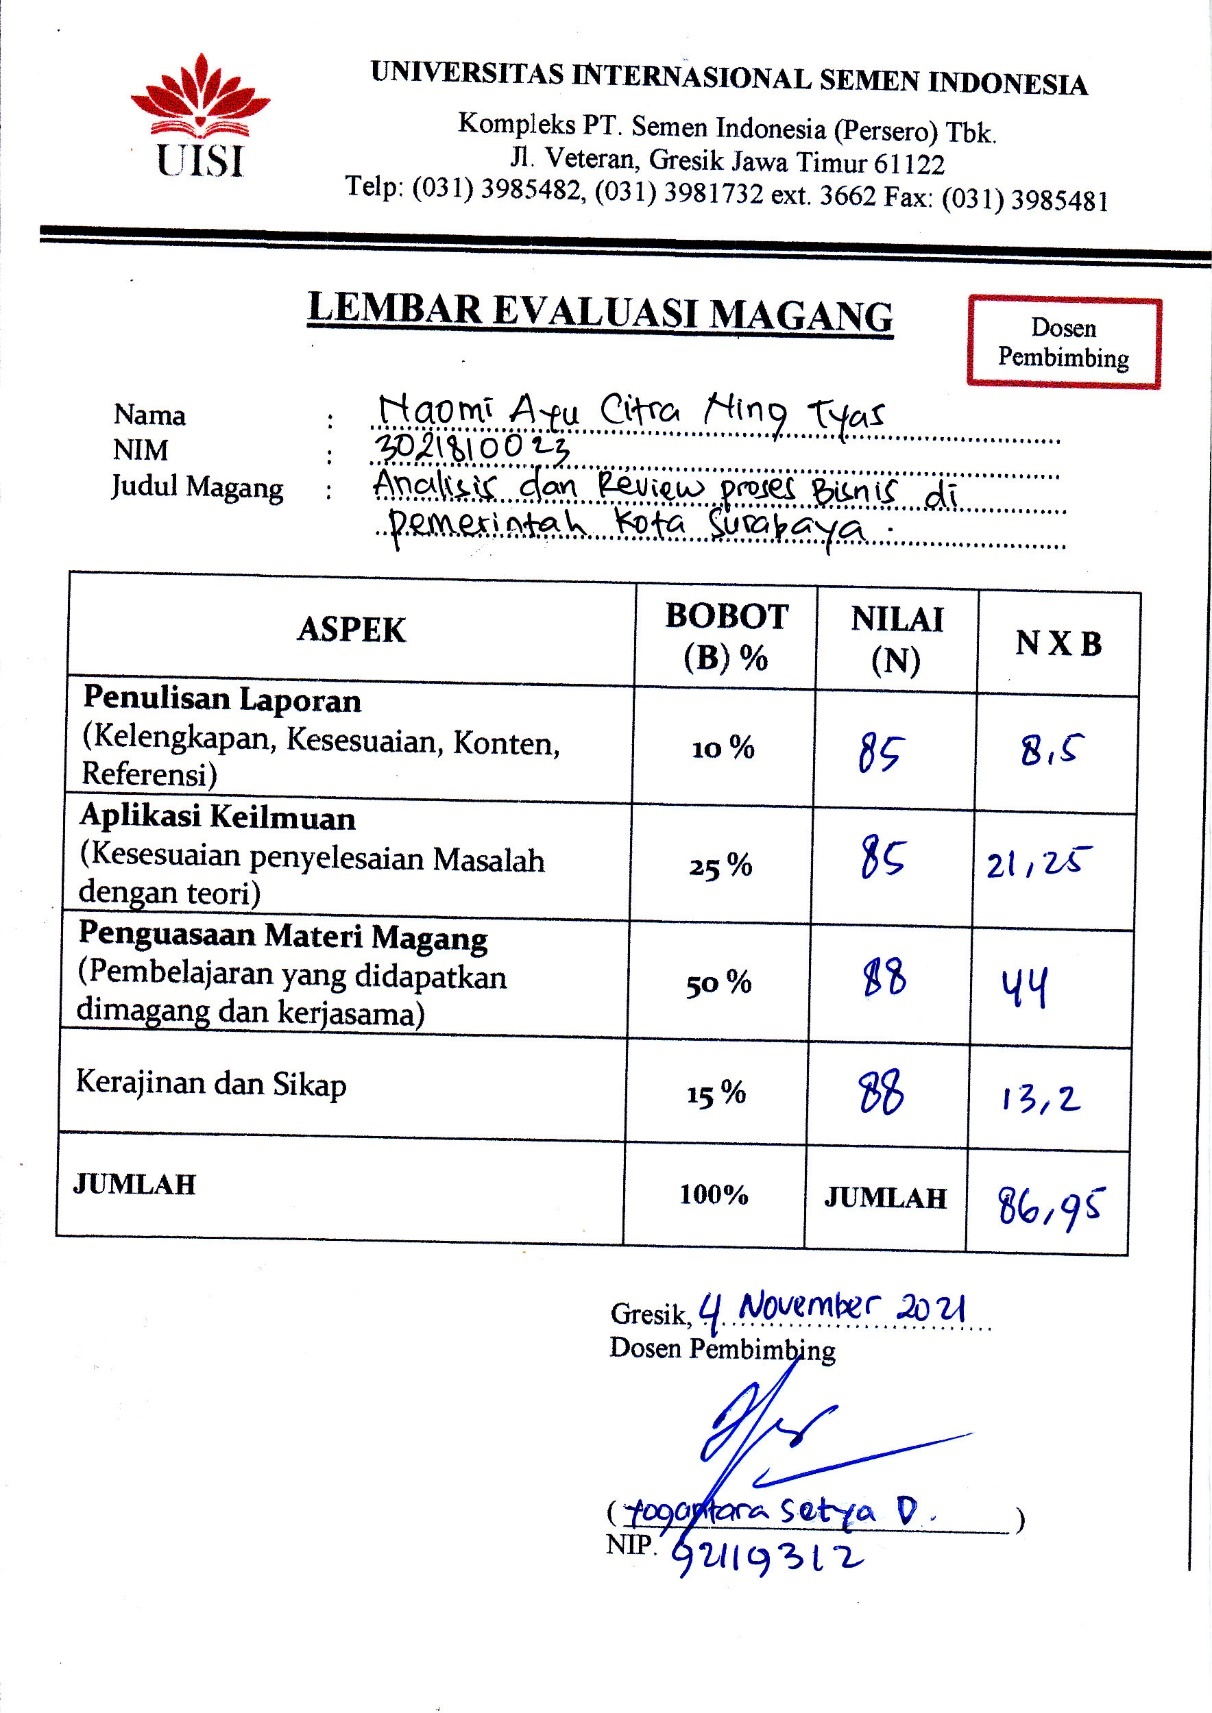 UISI
UNIVERSITAS INTERNASIONAL SEMEN INDONESIA
Kompleks PT. Semen Indonesia (Persero) Tbk.
Jl. Veteran, Gresik Jawa Timur 61122
Telp: (031) 3985482, (031) 3981732 ext. 3662 Fax: (031) 3985481
LEMBAR EVALUASI MAGANG
Dosen
Pembimbing
Nama : Naomi Ayu Citra Ning Tyas
NIM : 3021810023
Judul Magang : Analisis dan Review proses Bisnis di
pemerintah Kota Surabaya.
ASPEK BOBOT (B) % NILAI (N) N X B
Penulisan Laporan
(Kelengkapan, Kesesuaian, Konten,
Referensi) 10 % 85 8,5
Aplikasi Keilmuan
(Kesesuaian penyelesaian Masalah
dengan teori) 25 % 85 21,25
Penguasaan Materi Magang
(Pembelajaran yang didapatkan
dimagang dan kerjasama) 50 % 88 44
Kerajinan dan Sikap 15 % 88 13,2
JUMLAH 100% JUMLAH 86,95
Gresik, 4 November 2021
Dosen Pembimbing
(Yogantara Setya D. )
NIP. 92119312